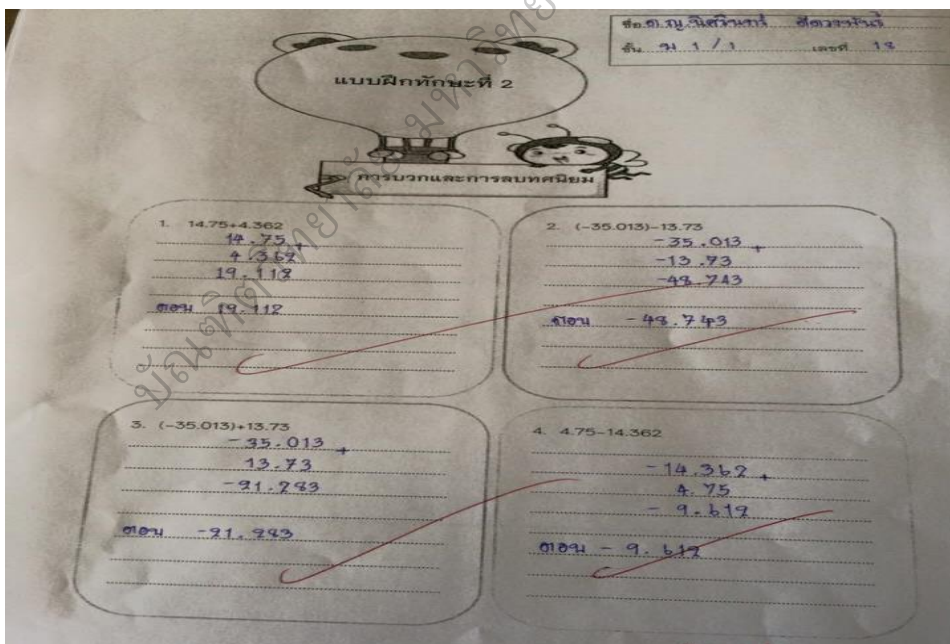 ชื่อ ด.ญ.
ชั้น ม 1 / 1 เลขที่ 18
แบบฝึกทักษะที่ 2
การบวกและการลบทศนิยม
1. 14.75+4.362
14.75 +
4.362
19.112
ตอบ 19.112
2. (-35.013)-13.73
-35.013 +
-13.73
-48.743
ตอบ -48.743
3. (-35.013)+13.73
-35.013 +
13.73
-21.283
ตอบ -21.283
4. 4.75-14.362
-14.362 +
4.75
- 9.612
ตอบ - 9.612